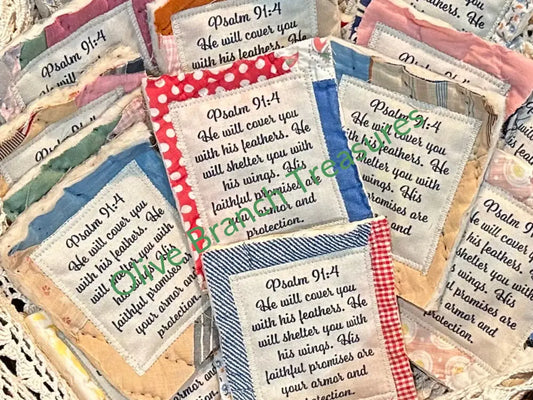 Psalm 91:4
He will cover you
with his feathers. He
Psalm 91:4
He will cover you
Psalm 91:4
Psalm 91:4
Psalm 91:4
He will cover you
with his feathers. He
will shelter you with
his wings. His
faithful promises are
your armor and
protection.
Psalm 91:4
He will cover you
with his feathers. He
will shelter you with
his wings. His
faithful promises are
your armor and
protection.
Psalm 91:4
He will cover you
with his feathers. He
will shelter you with
his wings. His
faithful promises are
your armor and
protection.
Psalm 91:4
He will cover you
with his feathers. He
will shelter you with
his wings. His
faithful promises are
your armor and
protection.
Olive Branch Treasures